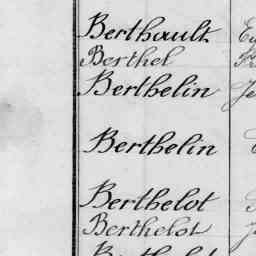 Berthault
Berthel
Berthelin
Berthelin
Berthelot
Berthelot